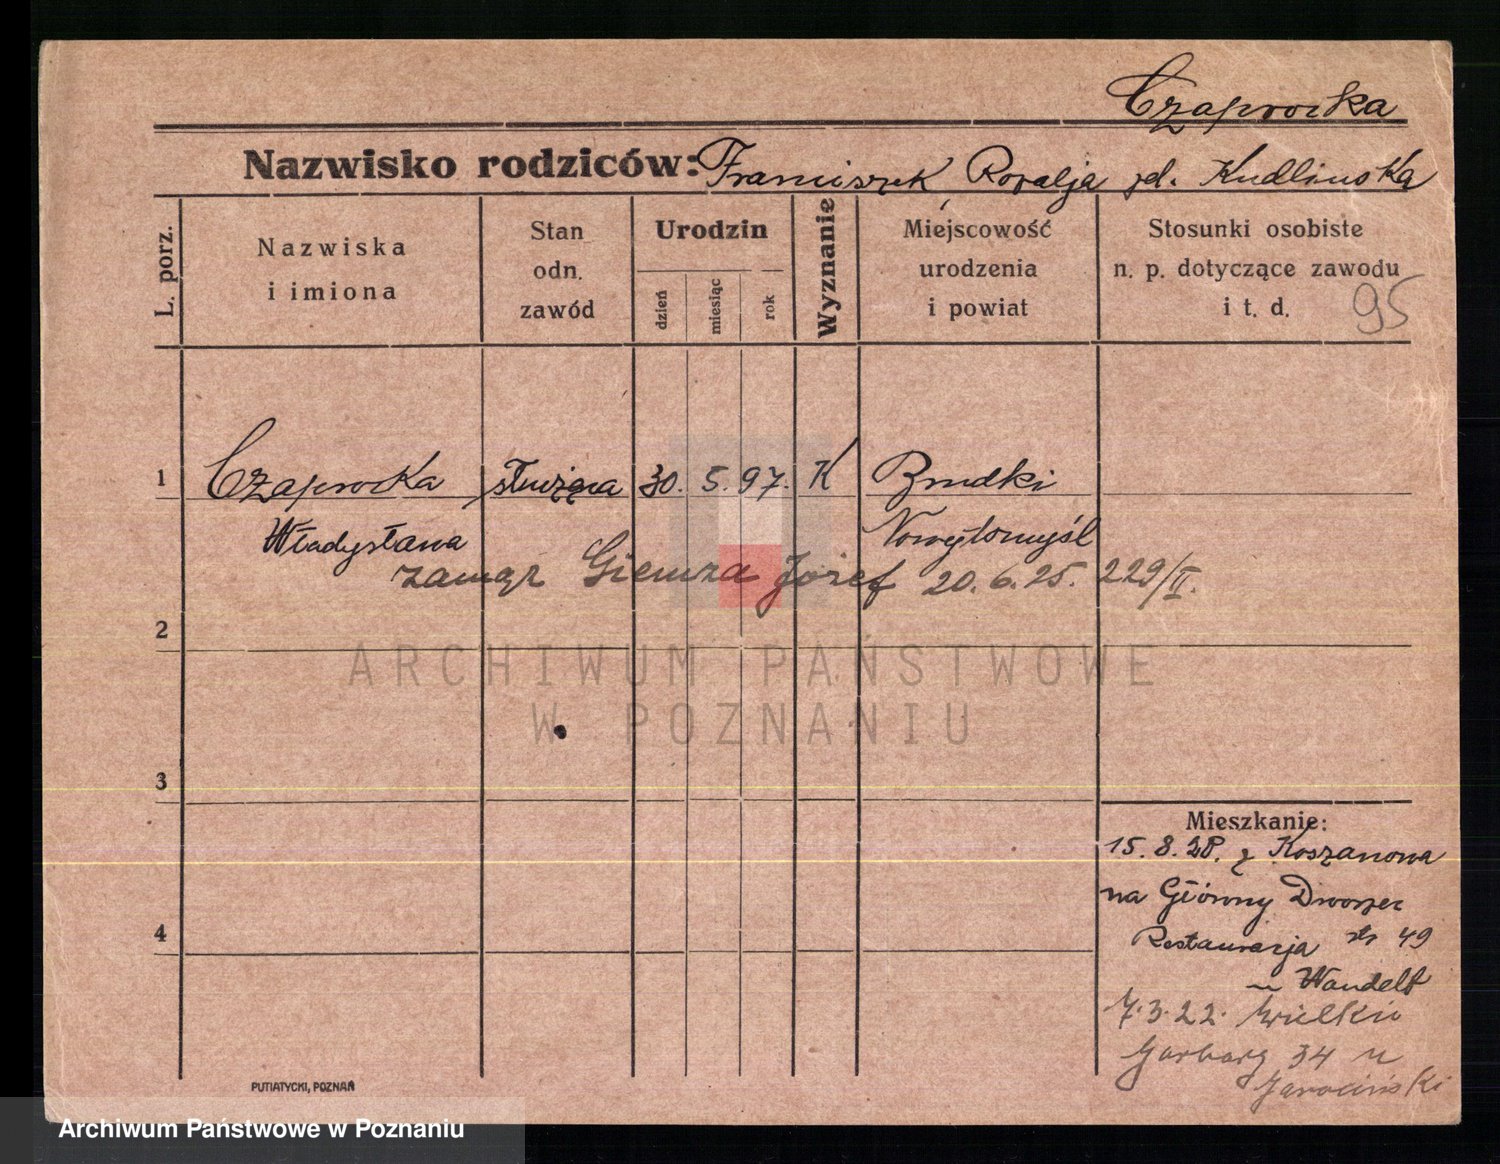 Czaprocka
Nazwisko rodziców: Franciszek Rozalja zd. Kudlinska
L. porz.
Nazwiska
i imiona
Stan
odn.
zawód
Urodzin
dzień
miesiąc
rok
Wyznanie
Miejscowość
urodzenia
i powiat
Stosunki osobiste
n. p. dotyczące zawodu
i t. d.
95
1 Czaprocka służąca 30. 5. 97. K Brudki
Władysława Nowytomyśl
zamąż Giemza Józef 20. 6. 25. 229/II.
2
3
4
ARCHIWUM PAŃSTWOWE
W POZNANIU
Mieszkanie:
15. 8. z Koszanowa
na Główny Dworzec
Restauracja 49
u Wandelt
7.3.22. Wielkie
Garbary 34 u
Jarociński
PUTIATYCKI, POZNAŃ
Archiwum Państwowe w Poznaniu